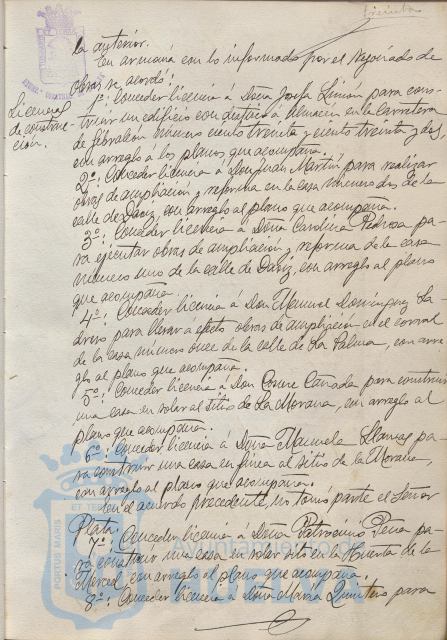 treinta
la anterior.
En armonía con lo informado por el Negociado de
obras se acordó:
Licencias
de construc-
ción.
1º: Conceder licencia á Doña Josefa Limón para cons-
truir un edificio con destino á almacén en la carretera
de Gibraleón número ciento treinta y ciento treinta y dos,
con arreglo á los planos que acompaña.
2º: Conceder licencia á Don Juan Martín para realizar
obras de ampliación y reforma en la casa número dos de la
calle de Daoiz, con arreglo al plano que acompaña.
3º: Conceder licencia á Doña Carolina Pedrosa pa-
ra ejecutar obras de ampliación y reforma de la casa
número uno de la calle de Daoiz, con arreglo al plano
que acompaña.
4º: Conceder licencia á Don Manuel Domínguez La
drero para llevar a efecto obras de ampliación en el corral
de la casa número once de la calle de La Palma, con arre
glo al plano que acompaña.
5º: Conceder licencia á Don Cosme Cañada para construir
una casa en solar al sitio de La Morana, con arreglo al
plano que acompaña.
6º: Conceder licencia á Doña Manuela Llamas pa-
ra construir una casa en finca al sitio de la Morana,
con arreglo al plano que acompaña.
En el acuerdo precedente, no tomó parte el Señor
Plata.
7º: Conceder licencia á Doña Patrocinio Peña pa-
ra construir una casa en solar sito en la Huerta de la
Merced, con arreglo al plano que acompaña.
8º: Conceder licencia á Doña María Quintero para
PORTUS MARIS ET TERRAE